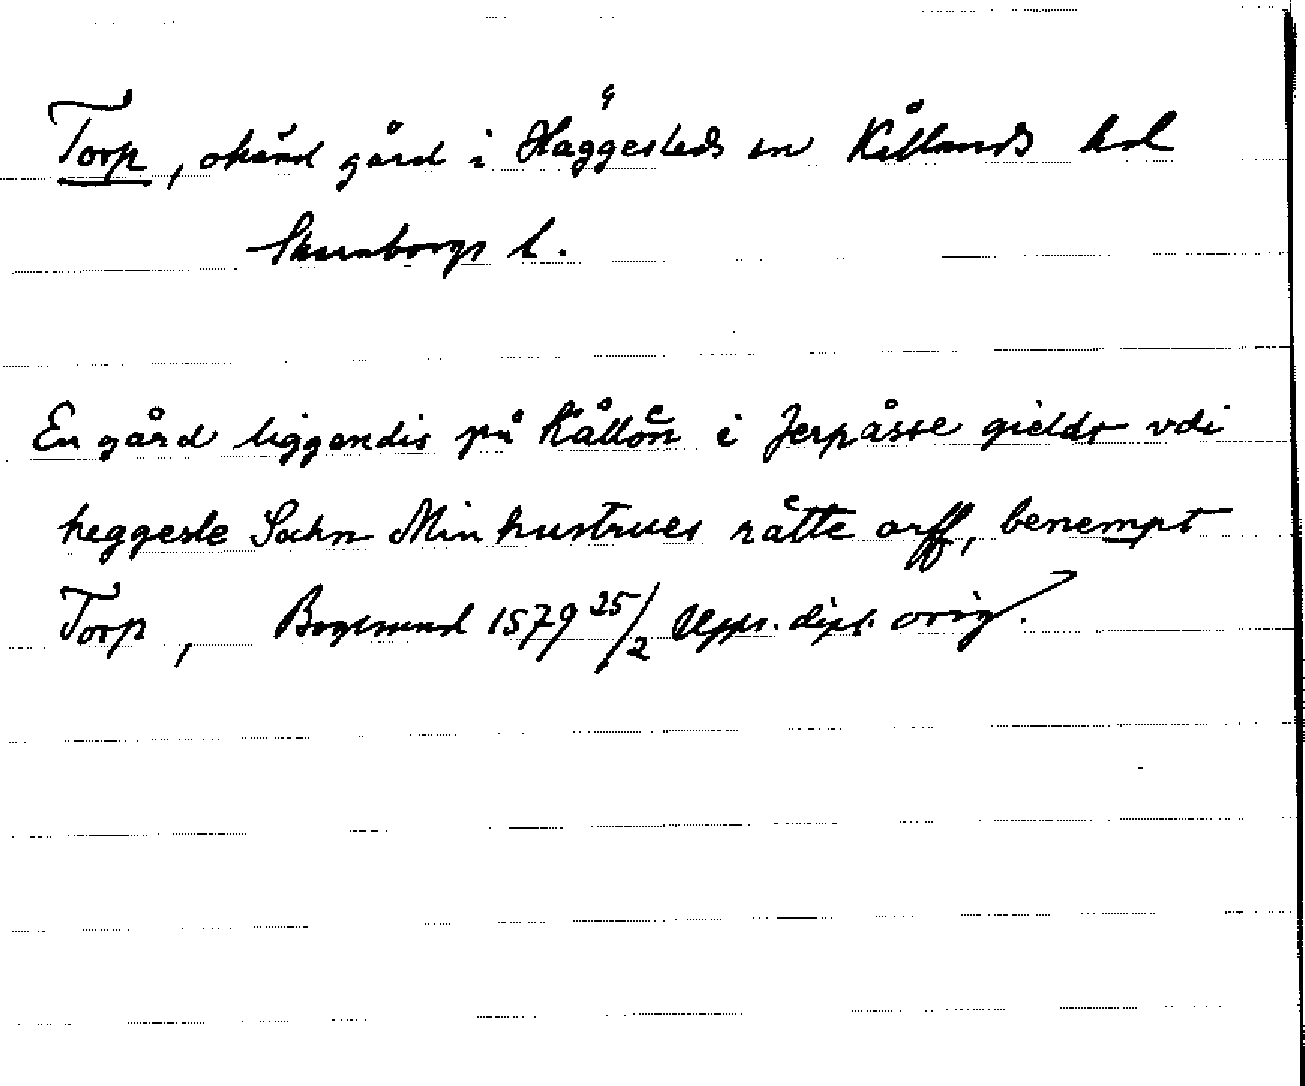 Torp, okänd gård i Häggesleds sn Kållands hd
Skaraborgs l.
En gård liggendis på Kållön i Jerpåsse gieldt vdi
heggesle Sochn Min hustrues rätte arff, benempt
Torp, Bogesund 1579 25/2 Upps. dipl. orig.